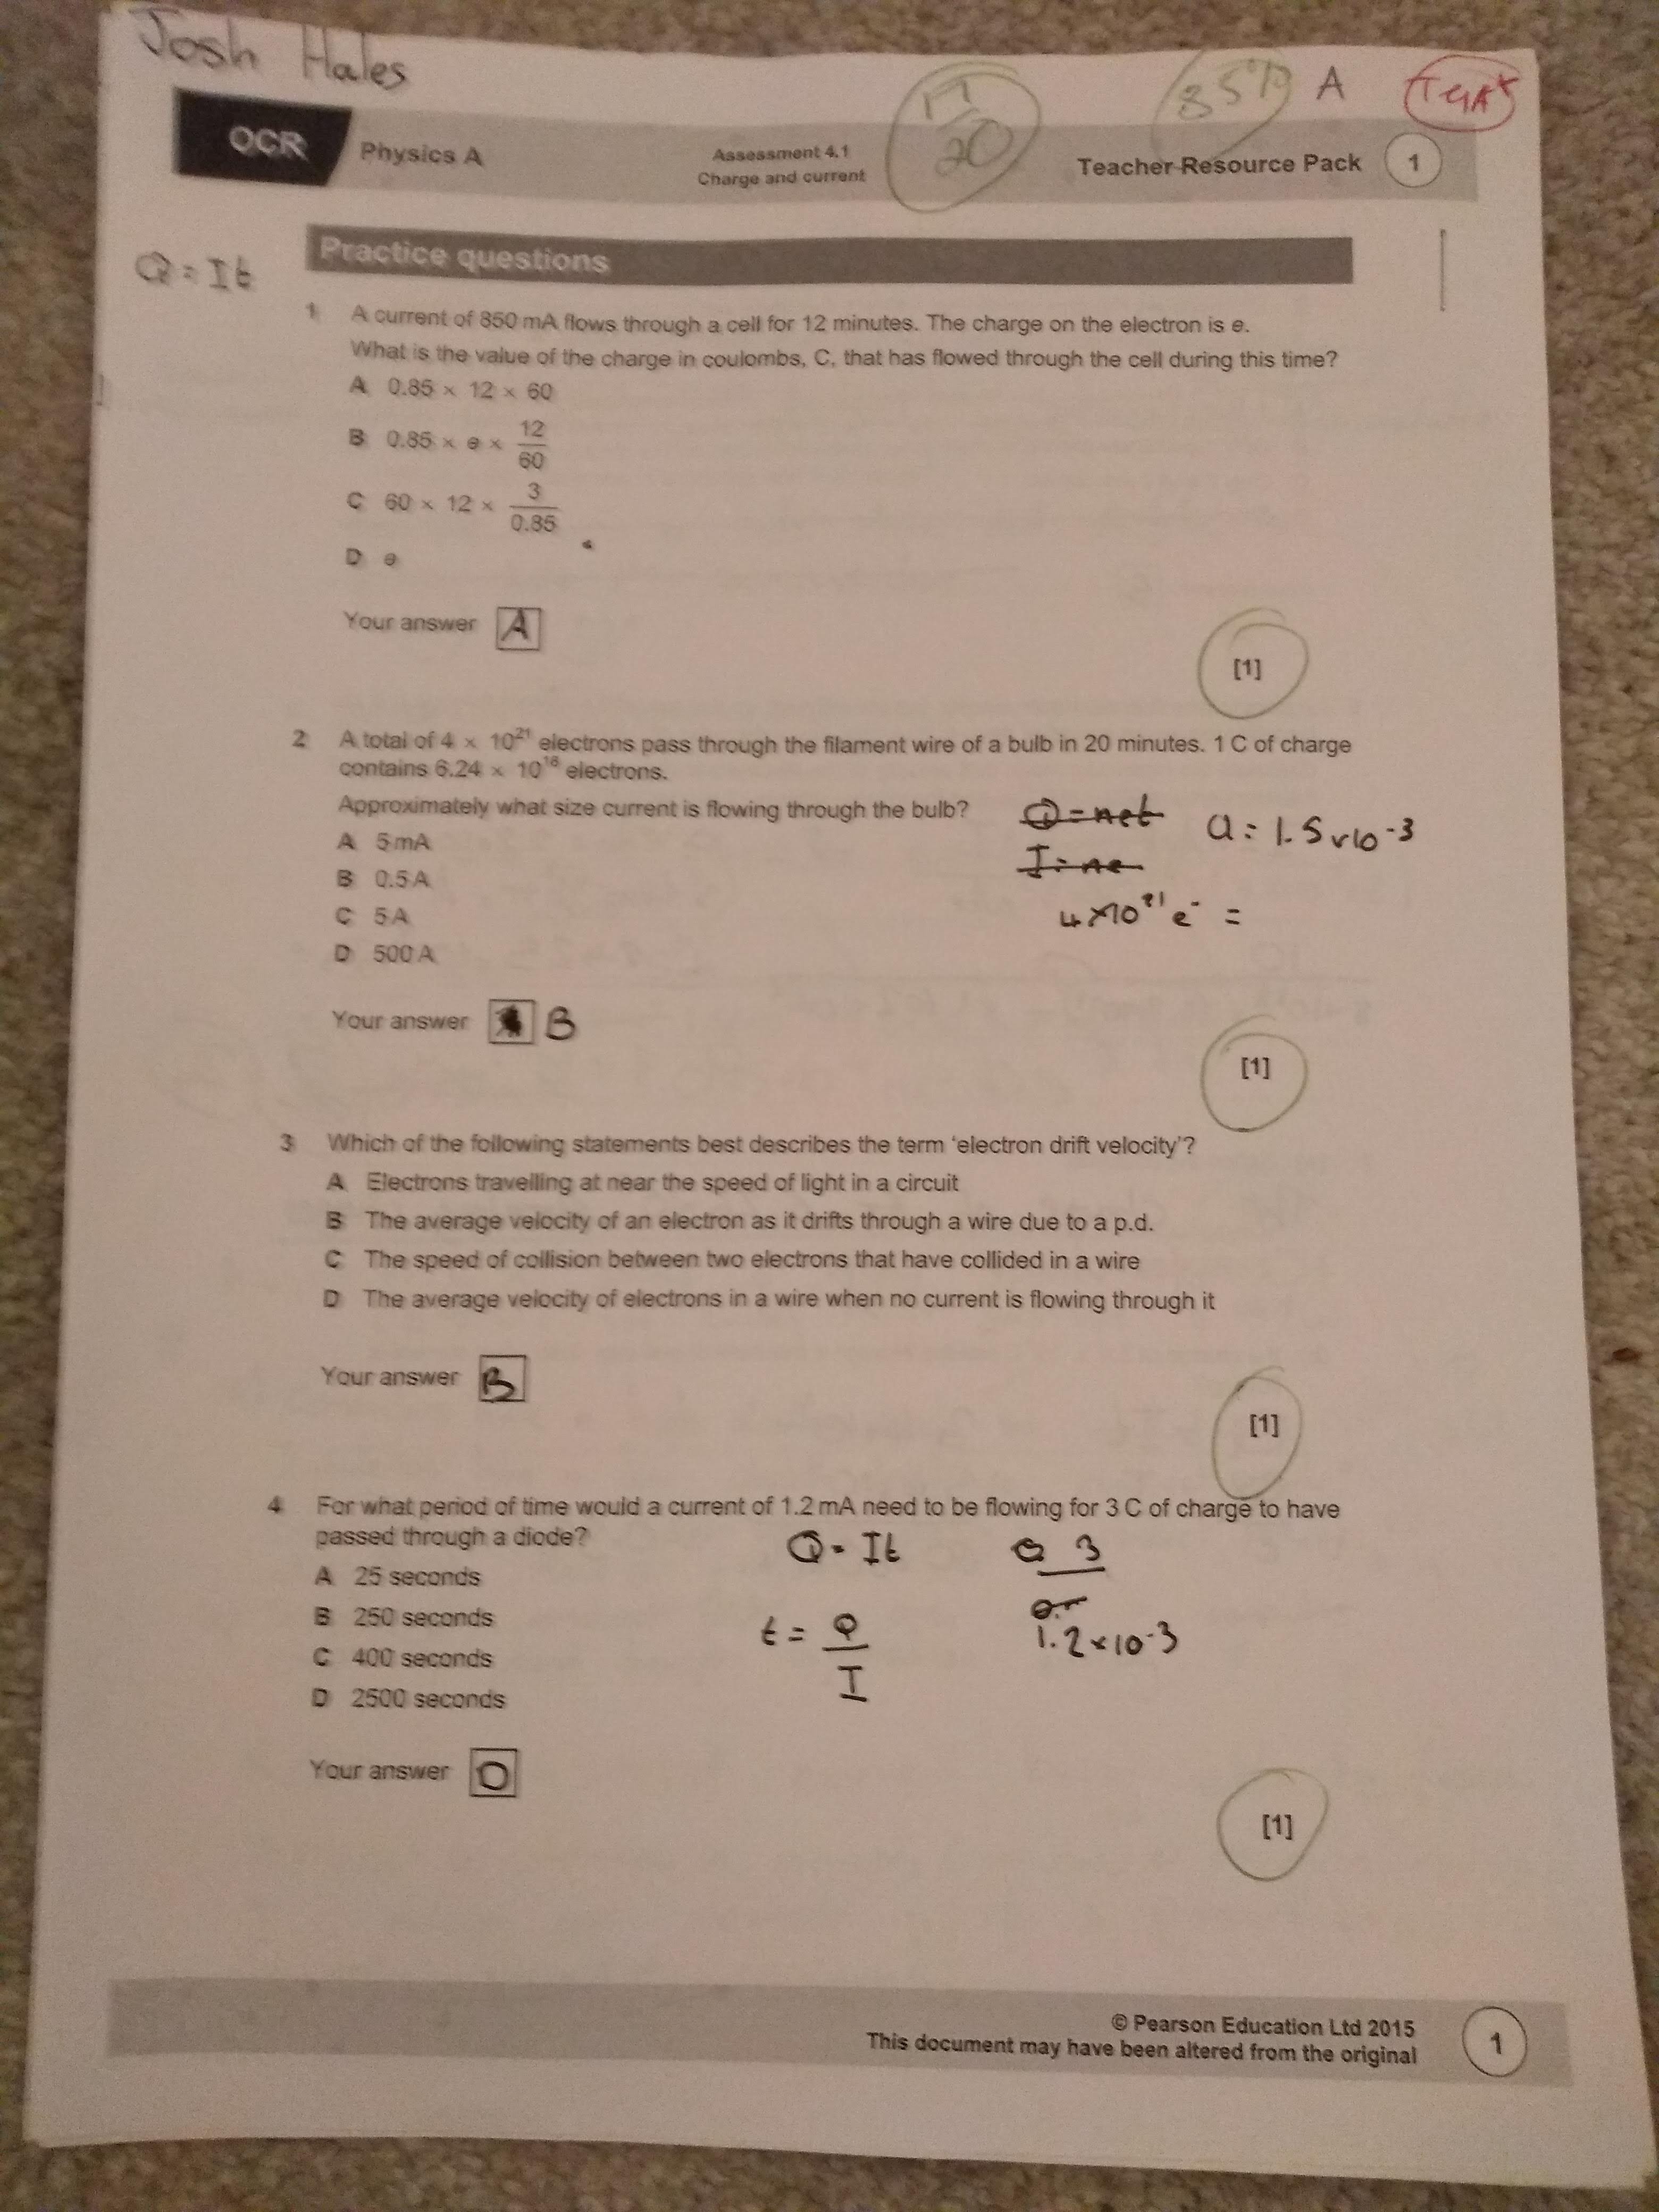 Josh Hales
17/20
85% A
OCR Physics A
Assessment 4.1
Charge and current
Teacher Resource Pack 1
Q = It
Practice questions
1 A current of 850 mA flows through a cell for 12 minutes. The charge on the electron is e.
What is the value of the charge in coulombs, C, that has flowed through the cell during this time?
A 0.85 × 12 × 60
B 0.85 × e × 12/60
C 60 × 12 × 3/0.85
D e
Your answer A
[1]
2 A total of 4 × 10²¹ electrons pass through the filament wire of a bulb in 20 minutes. 1 C of charge
contains 6.24 × 10¹⁸ electrons.
Approximately what size current is flowing through the bulb?
Q = net
Q = 1.5 × 10⁻³
A 5 mA
I = ne
B 0.5 A
C 5 A
4 × 10²¹ e⁻ =
D 500 A
Your answer B
[1]
3 Which of the following statements best describes the term 'electron drift velocity'?
A Electrons travelling at near the speed of light in a circuit
B The average velocity of an electron as it drifts through a wire due to a p.d.
C The speed of collision between two electrons that have collided in a wire
D The average velocity of electrons in a wire when no current is flowing through it
Your answer B
[1]
4 For what period of time would a current of 1.2 mA need to be flowing for 3 C of charge to have
passed through a diode?
Q = It
3
A 25 seconds
B 250 seconds
t = Q/I
1.2 × 10⁻³
C 400 seconds
D 2500 seconds
Your answer D
[1]
© Pearson Education Ltd 2015
This document may have been altered from the original
1